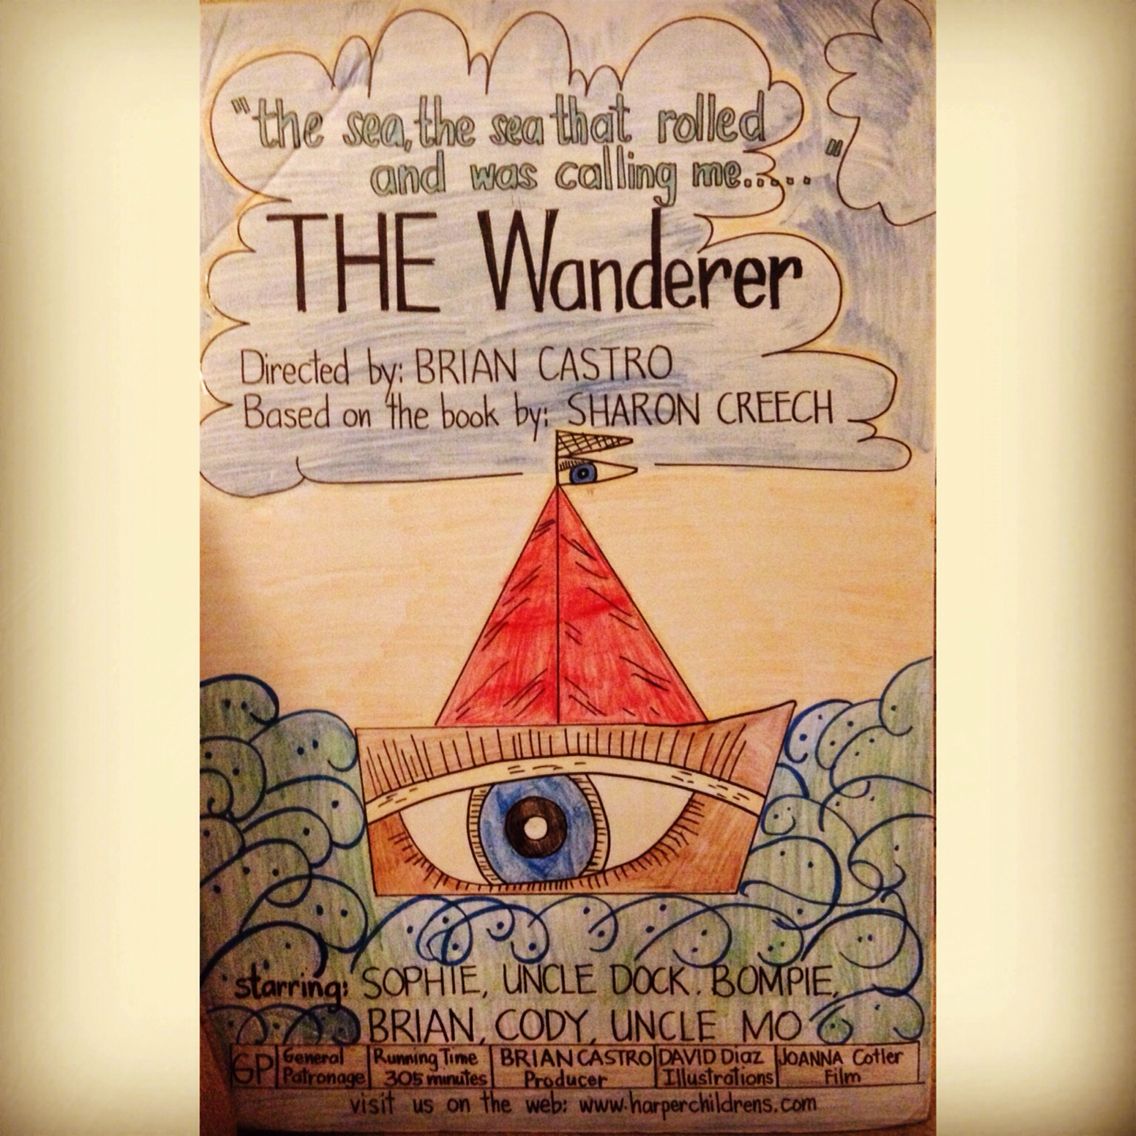 "the sea, the sea that rolled
and was calling me....."
THE Wanderer
Directed by: BRIAN CASTRO
Based on the book by: SHARON CREECH
starring: SOPHIE, UNCLE DOCK. BOMPIE,
BRIAN, CODY, UNCLE MO
GP General Patronage Running Time 305 minutes BRIAN CASTRO Producer DAVID DiaZ Illustrations JOANNA Cotler Film
visit us on the web: www.harperchildrens.com